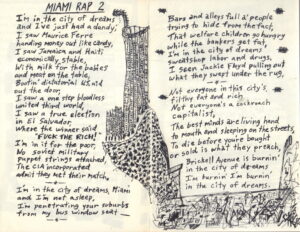 MIAMI RAP 2
I'm in the city of dreams
and I've just had a dandy;
I saw Maurice Ferre
handing money out like candy,
I saw Jamaica and Haiti
economically stable,
With milk for the babies
and meat on the table,
Bustin' dictatorial
out the door,
I saw a one step bloodless
united third world,
I saw a true election
in El Salvador,
Where the winner said
"FUCK THE RICH!"
I'm in it for the poor,
No soviet military
puppet strings attached,
The CIA incorporated
admit they met their match,
I'm in the city of dreams, Miami
and I'm not asleep,
I'm penetrating your suburbs
from my bus window seat
Bars and alleys full a' people
trying to hide from the fact,
That welfare children go hungry
while the bankers get fat,
I'm in the city of dreams,
sweatshop labor and drugs,
I seen Jackie Floyd pulling out
what they swept under the rug,
Not everyone in this city's
filthy fat and rich
Not everyone's a cockroach
capitalist,
The best minds are living hand
to mouth and sleeping on the streets
To die before you're bought
or sold is what they preach,
Brickell Avenue is burnin'
in the city of dreams
I'm burnin' I'm burnin
in the city of dreams.